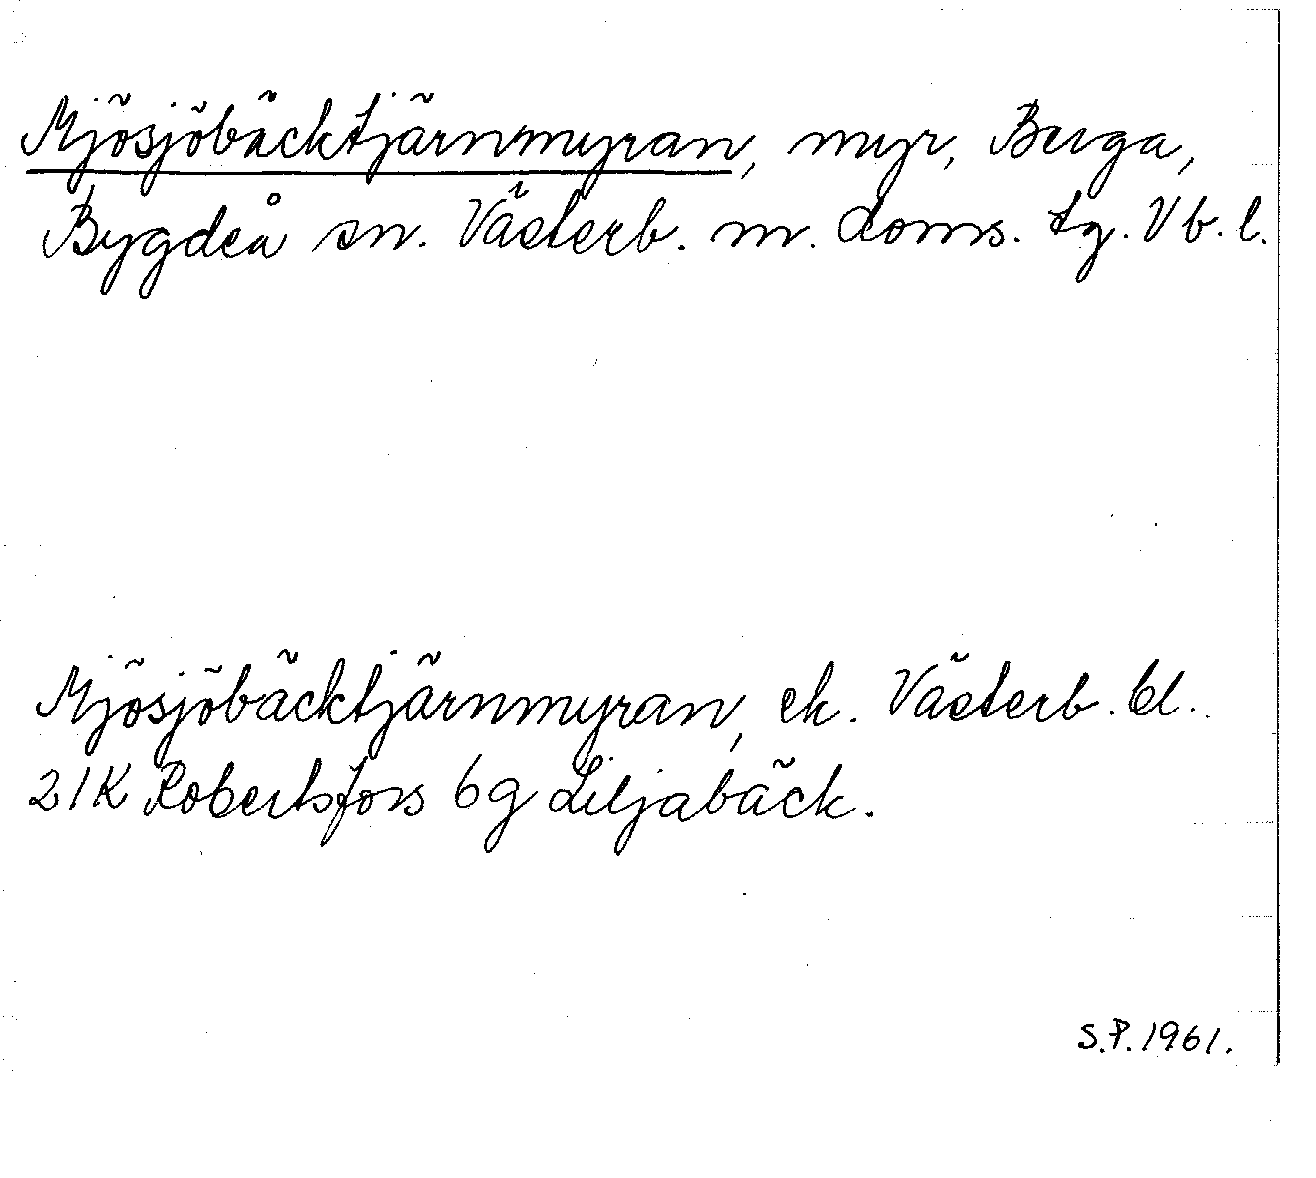 Mjösjöbäcktjärnmyran, myr, Berga,
Bygdeå sn. Västerb. m. doms. tg. Vb. l.
Mjösjöbäcktjärnmyran, ek. Västerb. bl.
21K Robertsfors 6g Liljabäck.
S.P. 1961.